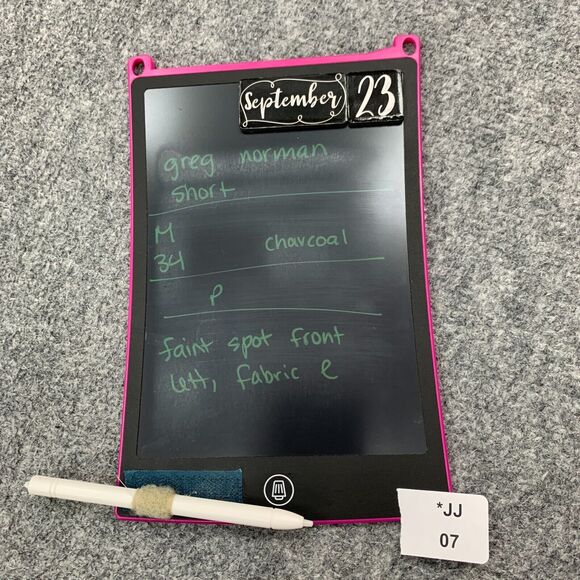 September 23
greg norman
short
M
charcoal
34
P
faint spot front
left, fabric e
*JJ
07